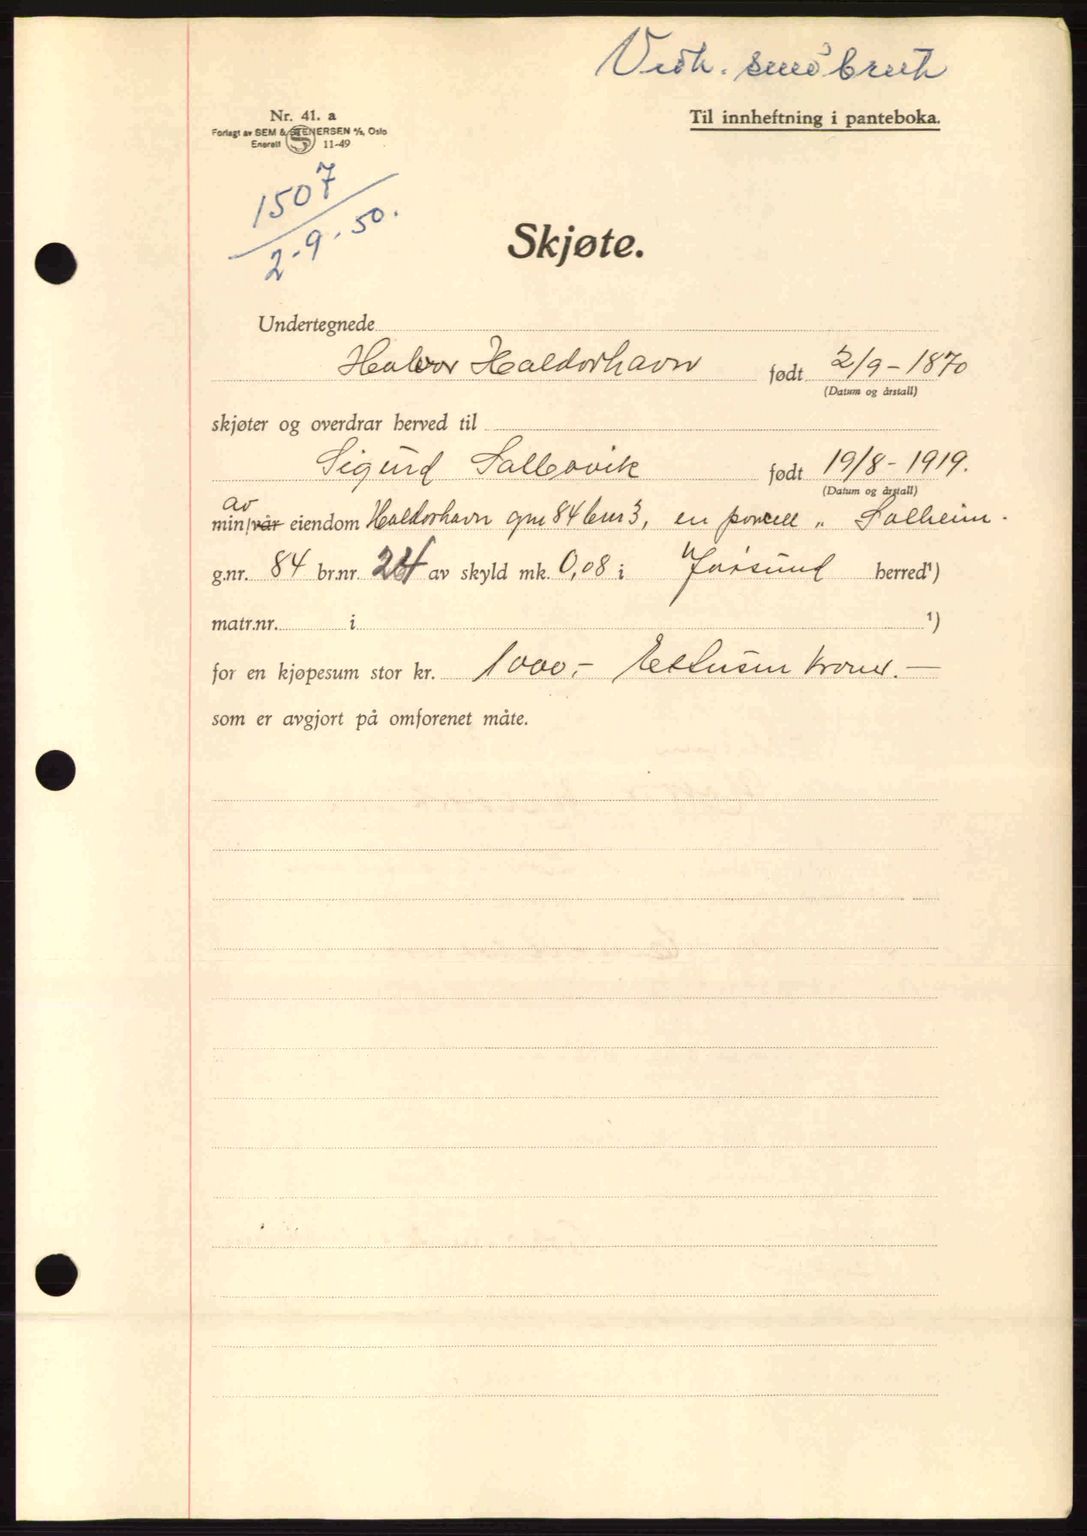 Vedh. småbruk
Nr. 41. a
Forlagt av SEM & STENERSEN A/S, Oslo
Enerett 11-49
Til innheftning i panteboka.
1507
2-9-50.
Skjøte.
Undertegnede
Halvor Haldorhavn født 2/9-1870
(Datum og årstall)
skjøter og overdrar herved til
Sigurd Sallevik født 19/8-1919.
(Datum og årstall)
av
min/vår eiendom Haldorhavn gnr 84 bnr 3, en parcell „Solheim"
g.nr. 84 br.nr. 24 av skyld mk. 0,08 i Farsund herred¹)
matr.nr. i ¹)
for en kjøpesum stor kr. 1000,- Ettusen kroner.—
som er avgjort på omforenet måte.